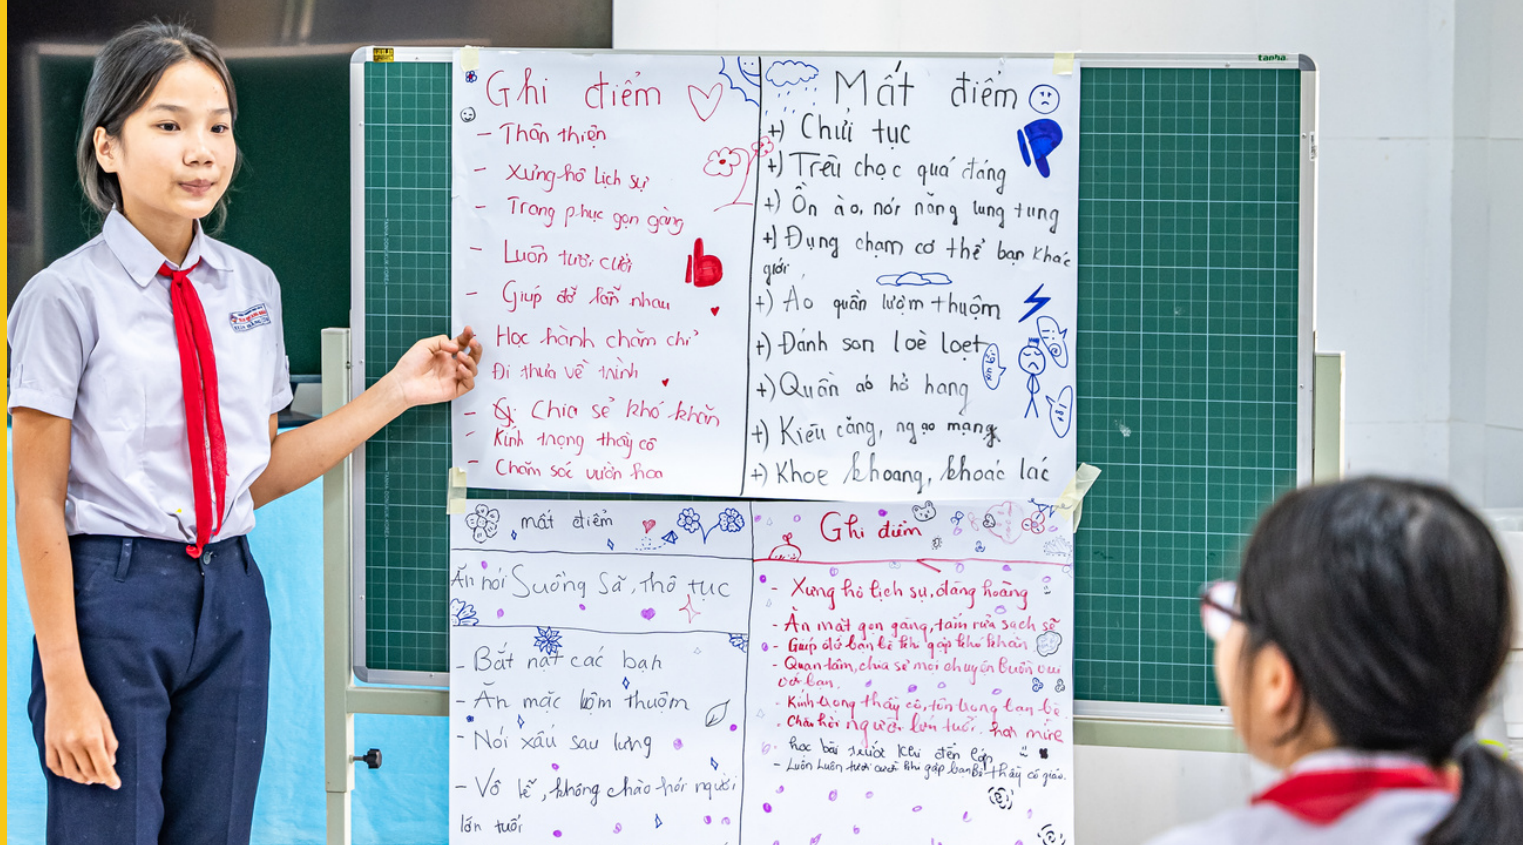 Ghi điểm
- Thân thiện
- Xưng hô lịch sự
- Trang phục gọn gàng
- Luôn tươi cười
- Giúp đỡ lẫn nhau
- Học hành chăm chỉ
Đi thưa về trình
- Chia sẻ khó khăn
- Kính trọng thầy cô
- Chăm sóc vườn hoa
Mất điểm
+) Chửi tục
+) Trêu chọc quá đáng
+) Ồn ào, nói năng lung tung
+) Đụng chạm cơ thể bạn khác
giới
+) Áo quần luộm thuộm
+) Đánh son loè loẹt
+) Quần áo hở hang
+) Kiêu căng, ngạo mạng
+) Khoe khoang, khoác lác
mất điểm
Ăn nói Suồng Sã, thô tục
- Bắt nạt các bạn
- Ăn mặc luộm thuộm
- Nói xấu sau lưng
- Vô lễ, không chào hỏi người
lớn tuổi
Ghi điểm
- Xưng hô lịch sự, đàng hoàng
- Ăn mặt gọn gàng, tắm rửa sạch sẽ
- Giúp đỡ bạn bè khi gặp khó khăn
- Quan tâm, chia sẻ mọi chuyện buồn vui
với bạn.
- Kính trọng thầy cô, tôn trọng bạn bè.
- Chào hỏi người lớn tuổi hơn mình
học bài trước khi đến lớp
- Luôn Luôn tươi cười khi gặp bạn bè thầy cô giáo.
tanba